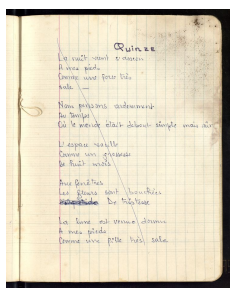 Quinze
La nuit vient s'asseoir
A mes pieds
Comme une très
sale —
Nous pensons ardemment
Au temps
Où le monde était debout simple mais
L'espace
Comme un
De huit mois
Aux fenêtres
Les fleurs sont bouchées
De tristesse
La lune est venue dormir
A mes pieds
Comme une fille très sale